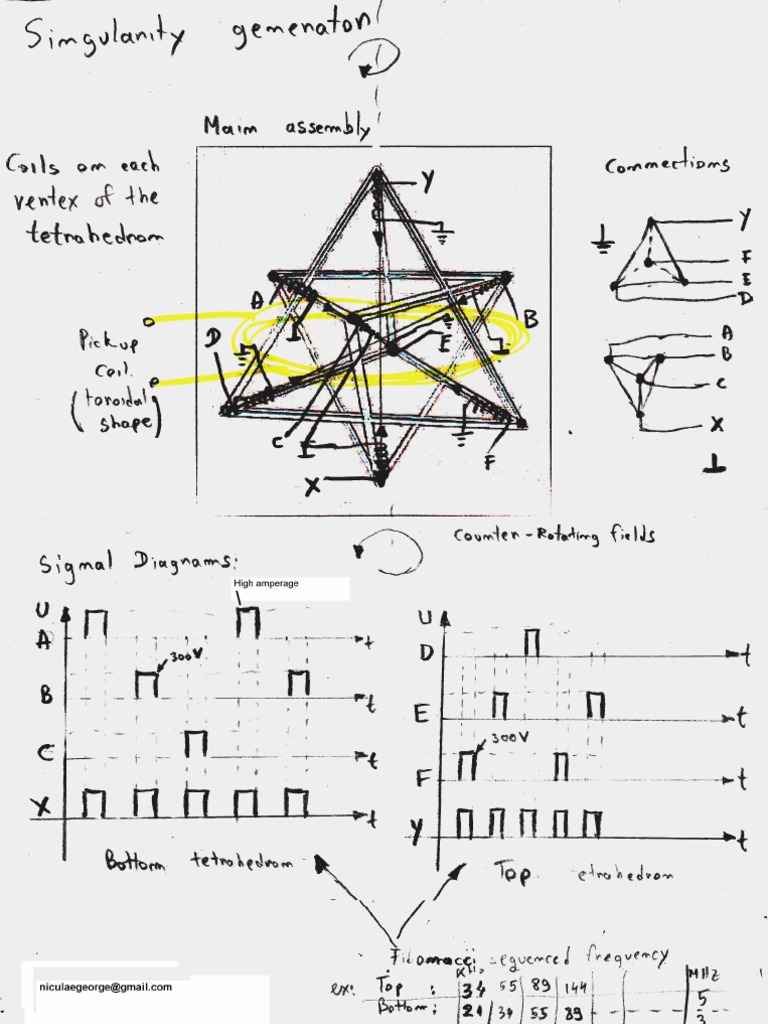 Singularity generator
Main assembly
Coils on each
vertex of the
tetrahedron
Connections
Y
A
I
B
D
E
Pickup
coil
(toroidal
shape)
C
I
F
X
Y
F
E
D
A
B
C
X
Counter-Rotating fields
Signal Diagrams:
High amperage
U
A
t
300V
B
t
C
t
X
t
Bottom tetrahedron
U
D
t
E
t
300V
F
t
Y
t
Top etrahedron
Fibonacci sequenced frequency
KHz
MHz
ex: Top : 34 55 89 144 5
Bottom: 21 34 55 89 3
niculaegeorge@gmail.com